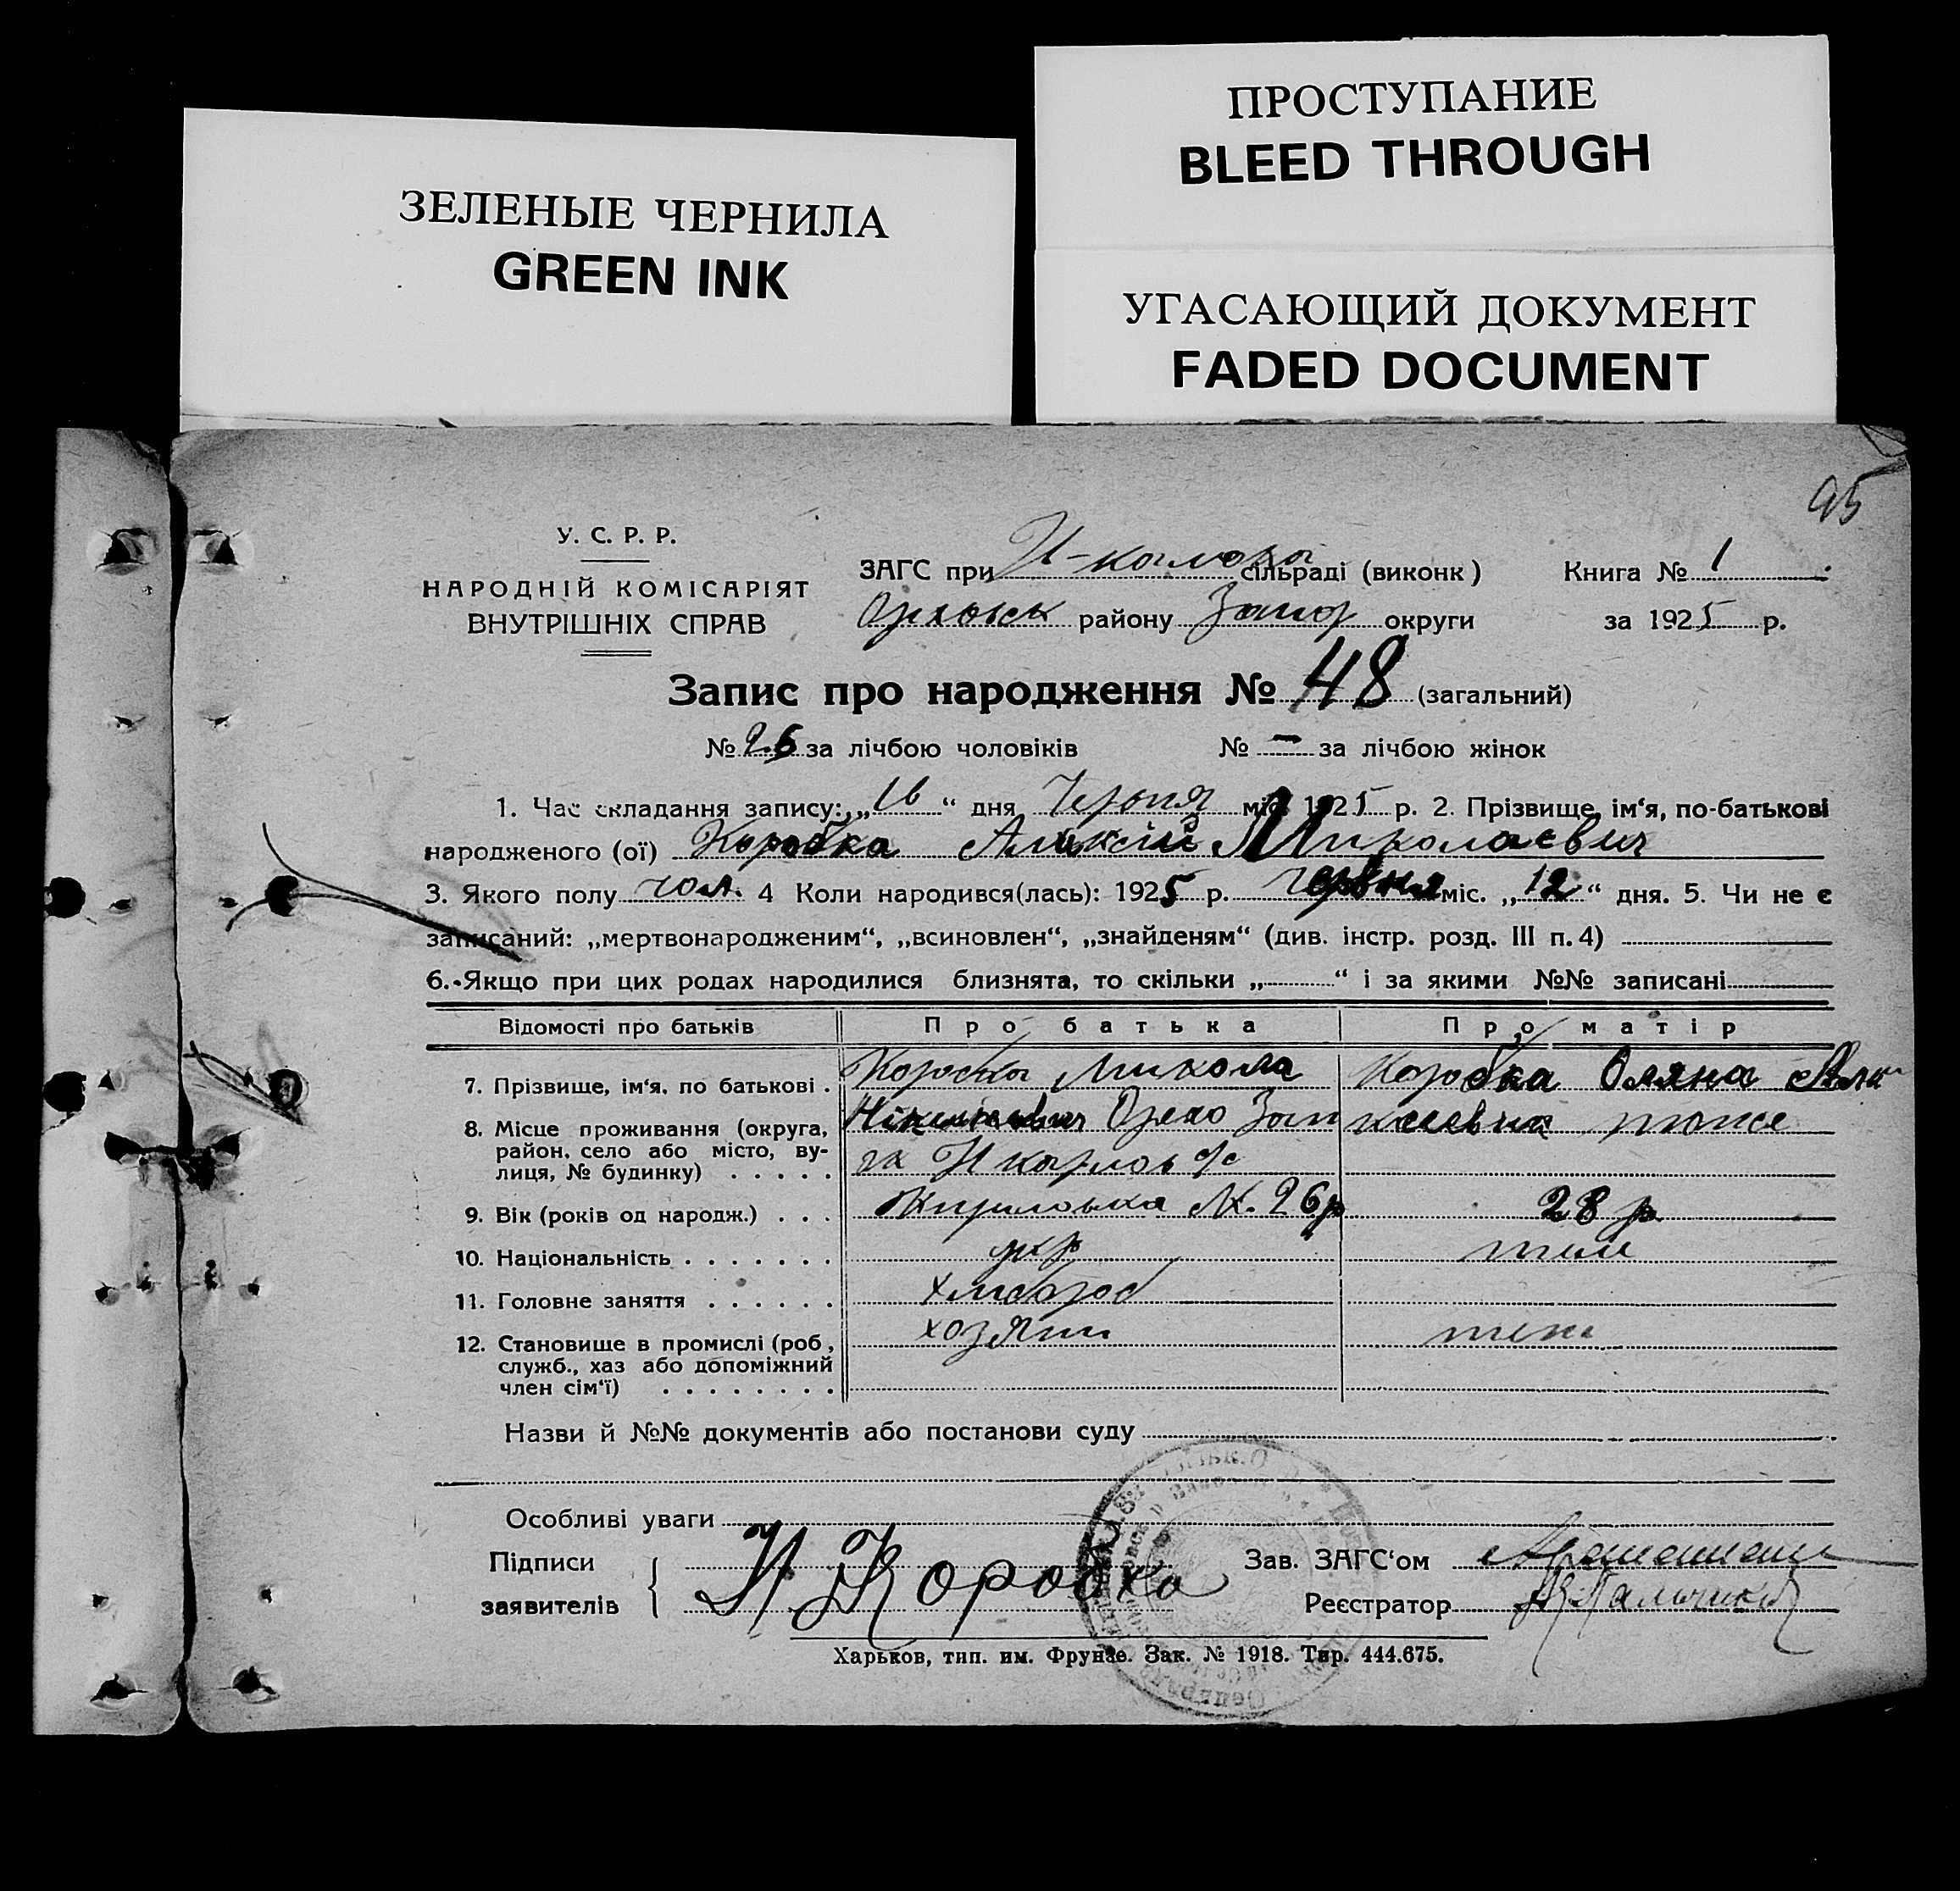 ПРОСТУПАНИЕ
BLEED THROUGH
ЗЕЛЕНЫЕ ЧЕРНИЛА
GREEN INK
УГАСАЮЩИЙ ДОКУМЕНТ
FADED DOCUMENT
95
У. С. Р. Р.
НАРОДНІЙ КОМІСАРІЯТ
ВНУТРІШНІХ СПРАВ
ЗАГС при сільраді (виконк) Книга № 1
району Запор округи за 1925 р.
Запис про народження № 48 (загальний)
№ 26 за лічбою чоловіків № – за лічбою жінок
1. Час складання запису: „16“ дня Червня міс. 1925 р. 2. Прізвище, ім‘я, по-батькові
народженого (ої) Коробка Алексій Миколаєвич
3. Якого полу чол. 4 Коли народився(лась): 1925 р. Червня міс. „12“ дня. 5. Чи не є
записаний: „мертвонародженим“, „всиновлен“, „знайденям“ (див. інстр. розд. III п. 4)
6. Якщо при цих родах народилися близнята, то скільки „ “ і за якими №№ записані
Відомості про батьків Про батька Про матір
7. Прізвище, ім‘я, по батькові . Коробка Микола Коробка Оляна Алек
8. Місце проживання (округа, ксеевна тоже
район, село або місто, ву-
лиця, № будинку) . . . . .
9. Вік (років од народж.) . . . 26 р 28 р
10. Національність . . . . . . . укр
11. Головне заняття . . . . . . хлебороб
12. Становище в промислі (роб, хозяин
служб., хаз або допоміжний
член сім‘ї) . . . . . . . .
Назви й №№ документів або постанови суду
Особливі уваги
Підписи Зав. ЗАГС‘ом
заявителів Н Коробка Реєстратор
Харьков, тип. им. Фрунзе. Зак. № 1918. Тир. 444.675.